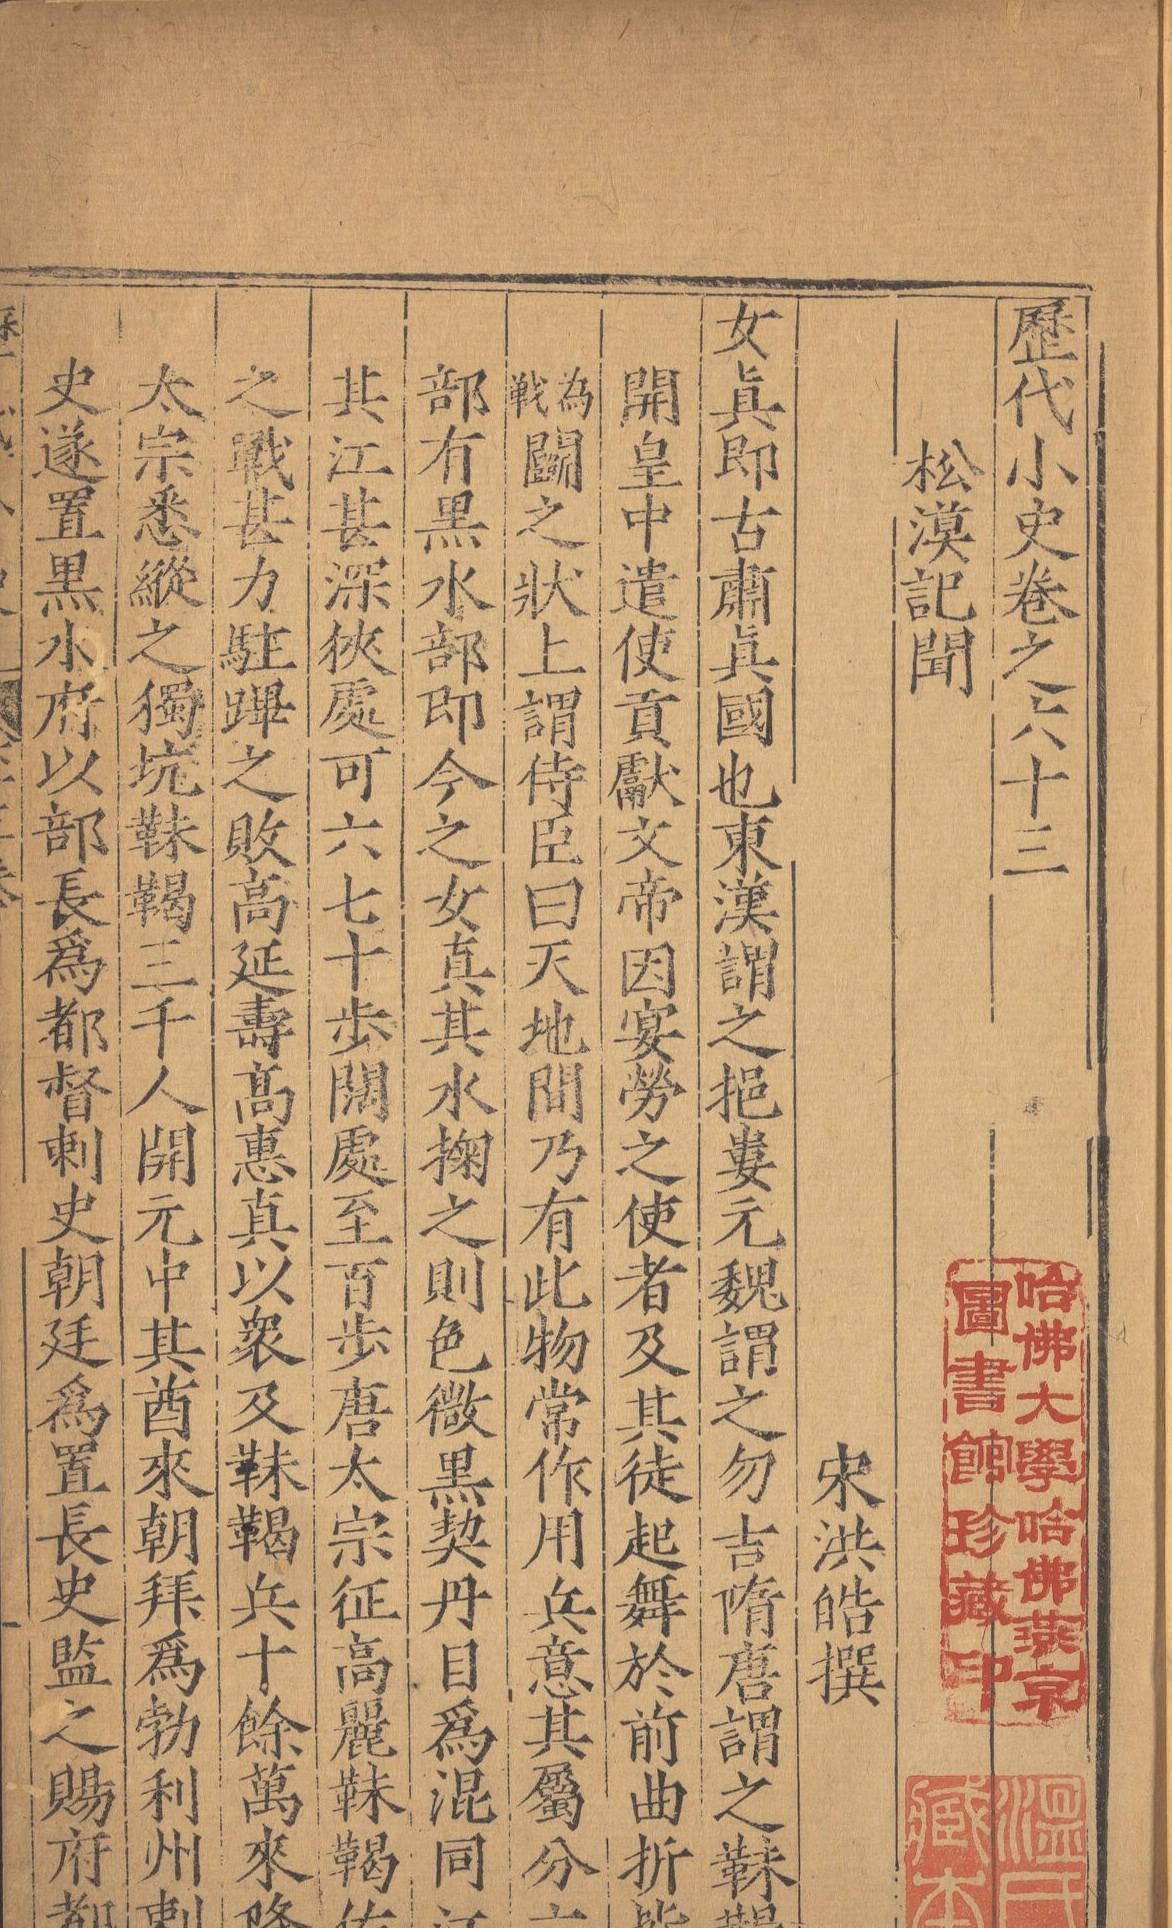 歷代小史卷之六十三
松漠記聞
宋洪皓撰
女眞即古肅眞國也東漢謂之挹婁元魏謂之勿吉隋唐謂之靺鞨
開皇中遣使貢獻文帝因宴勞之使者及其徒起舞於前曲折皆
為戰鬭之狀上謂侍臣曰天地間乃有此物常作用兵意其屬分六
部有黑水部即今之女真其水掬之則色微黑契丹目爲混同江
其江甚深狹處可六七十步闊處至百步唐太宗征高麗靺鞨佐
之戰甚力駐蹕之敗高延壽高惠真以衆及靺鞨兵十餘萬來降
太宗悉縱之獨坑靺鞨三千人開元中其酋來朝拜爲勃利州刺
史遂置黑水府以部長爲都督刺史朝廷爲置長史監之賜府都
哈佛大學哈佛燕京
圖書館珍藏印
藏本